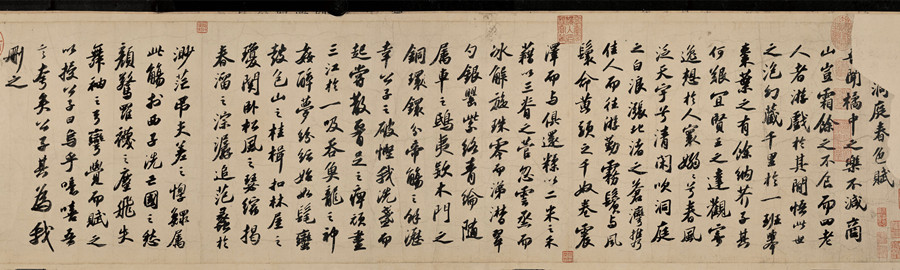 洞庭春色賦
聞橘中之樂不減商
山豈霜餘之不食而四老
人者游戲於其間悟此世
之泡幻藏千里於一班舉
棗葉之有餘納芥子其
何艱宜賢王之達觀寄
逸想於人寰嫋嫋兮春風
泛天宇兮清閑吹洞庭
之白浪漲北渚之蒼灣攜
佳人而往游勤霧鬢與風
鬟命黃頭之千奴卷震
澤而與俱還糅以二米之禾
藉以三脊之菅忽雲烝而
冰解旋珠零而涕潸翠
勺銀罌紫絡青綸隨
屬車之鴟夷款木門之
銅鐶分帝觴之餘瀝
幸公子之破慳我洗盞而
起嘗散腰足之痺頑盡
三江於一吸吞魚龍之神
姦醉夢紛紜始如髦蠻
鼓包山之桂楫扣林屋之
瓊關臥松風之瑟縮揭
春溜之淙潺追范蠡於
渺茫吊夫差之惸鰥屬
此觴於西子洗亡國之愁
顏驚羅襪之塵飛失
舞袖之弓彎覺而賦之
以授公子曰烏乎噫嘻吾
言夸矣公子其為我
刪之